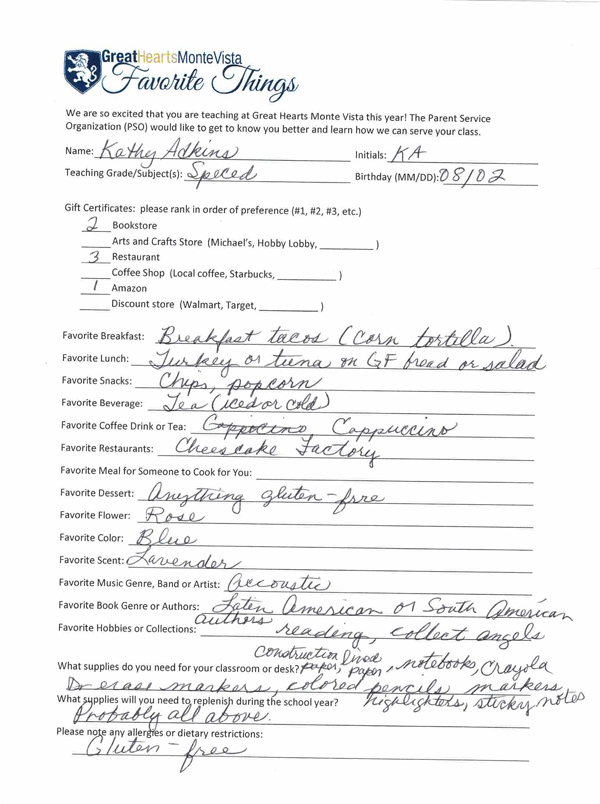 GreatHeartsMonteVista
Favorite Things
We are so excited that you are teaching at Great Hearts Monte Vista this year! The Parent Service
Organization (PSO) would like to get to know you better and learn how we can serve your class.
Name: Kathy Adkins Initials: KA
Teaching Grade/Subject(s): Sp.ced Birthday (MM/DD): 08/02
Gift Certificates: please rank in order of preference (#1, #2, #3, etc.)
2 Bookstore
Arts and Crafts Store (Michael's, Hobby Lobby, __________ )
3 Restaurant
Coffee Shop (Local coffee, Starbucks, ___________ )
1 Amazon
Discount store (Walmart, Target, ___________ )
Favorite Breakfast: Breakfast tacos (corn tortilla).
Favorite Lunch: Turkey or tuna on GF bread or salad
Favorite Snacks: Chips, popcorn
Favorite Beverage: Tea (iced or cold)
Favorite Coffee Drink or Tea: Cappuccino
Favorite Restaurants: Cheescake Factory
Favorite Meal for Someone to Cook for You:
Favorite Dessert: Anything gluten-free
Favorite Flower: Rose
Favorite Color: Blue
Favorite Scent: Lavender
Favorite Music Genre, Band or Artist: Accoustic
Favorite Book Genre or Authors: Laten American or South American
authors
Favorite Hobbies or Collections: reading, collect angels
construction lined
What supplies do you need for your classroom or desk? paper, paper, notebooks, Crayola
D-erase markers, colored pencils, markers,
highlighters, sticky notes
What supplies will you need to replenish during the school year?
Probably all above.
Please note any allergies or dietary restrictions:
Gluten-free